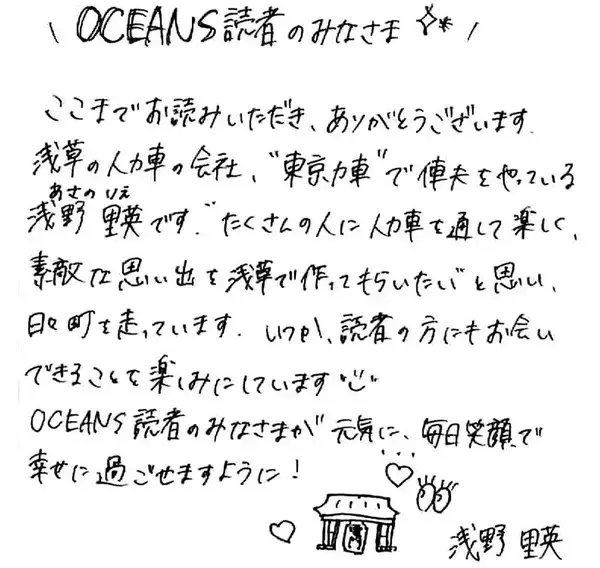 \ OCEANS読者のみなさま /
ここまでお読みいただき、ありがとうございます.
浅草の人力車の会社、"東京力車"で俥夫をやっている
あさの りえ
浅野 里英です."たくさんの人に人力車を通して楽しく、
素敵な思い出を浅草で作ってもらいたい"と思い、
日々町を走っています. いつか、読者の方にもお会い
できることを楽しみにしています
OCEANS読者のみなさまが元気に、毎日笑顔で
幸せに過ごせますように!
浅野 里英